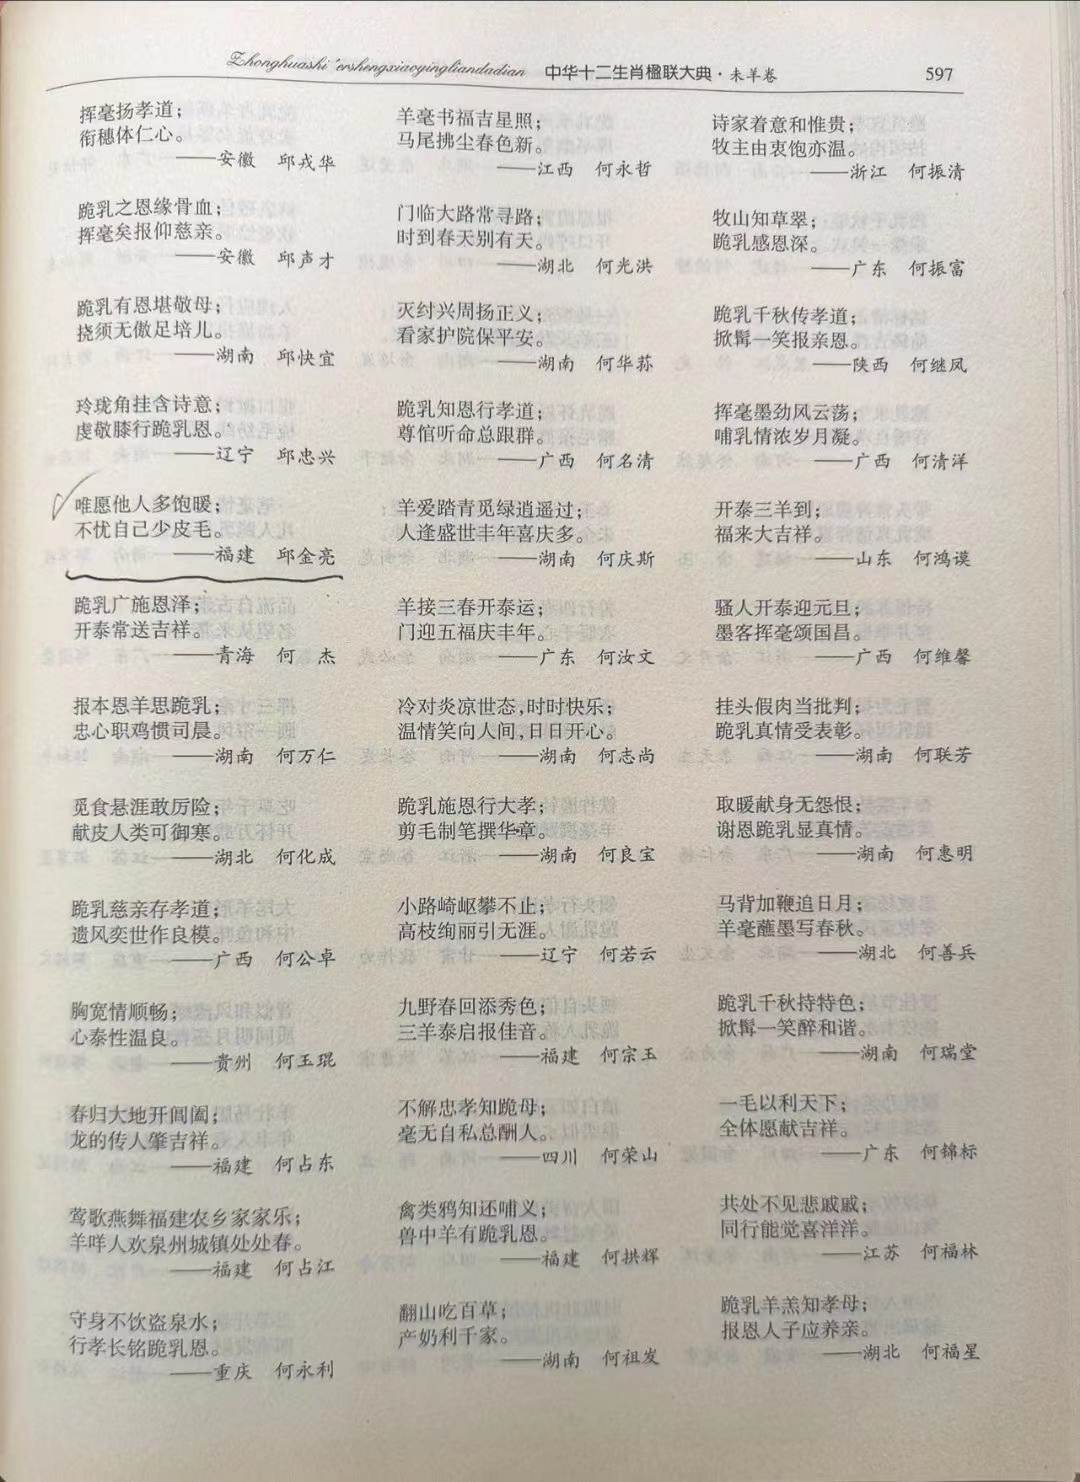 Zhonghuashi'ershengxiaoyingliandadian 中华十二生肖楹联大典·未羊卷 597
挥毫扬孝道；
衔穗体仁心。
——安徽 邱戎华
跪乳之恩缘骨血；
挥毫矣报仰慈亲。
——安徽 邱声才
跪乳有恩堪敬母；
挠须无傲足培儿。
——湖南 邱快宜
玲珑角挂含诗意；
虔敬膝行跪乳恩。
——辽宁 邱忠兴
唯愿他人多饱暖；
不忧自己少皮毛。
——福建 邱金亮
跪乳广施恩泽；
开泰常送吉祥。
——青海 何杰
报本恩羊思跪乳；
忠心职鸡惯司晨。
——湖南 何万仁
觅食悬涯敢厉险；
献皮人类可御寒。
——湖北 何化成
跪乳慈亲存孝道；
遗风奕世作良模。
——广西 何公卓
胸宽情顺畅；
心泰性温良。
——贵州 何玉琨
春归大地开阊阖；
龙的传人肇吉祥。
——福建 何占东
莺歌燕舞福建农乡家家乐；
羊咩人欢泉州城镇处处春。
——福建 何占江
守身不饮盗泉水；
行孝长铭跪乳恩。
——重庆 何永利
羊毫书福吉星照；
马尾拂尘春色新。
——江西 何永哲
门临大路常寻路；
时到春天别有天。
——湖北 何光洪
灭纣兴周扬正义；
看家护院保平安。
——湖南 何华荪
跪乳知恩行孝道；
尊倌听命总跟群。
——广西 何名清
羊爱踏青觅绿逍遥过；
人逢盛世丰年喜庆多。
——湖南 何庆斯
羊接三春开泰运；
门迎五福庆丰年。
——广东 何汝文
冷对炎凉世态，时时快乐；
温情笑向人间，日日开心。
——湖南 何志尚
跪乳施恩行大孝；
剪毛制笔撰华章。
——湖南 何良宝
小路崎岖攀不止；
高枝绚丽引无涯。
——辽宁 何若云
九野春回添秀色；
三羊泰启报佳音。
——福建 何宗玉
不解忠孝知跪母；
毫无自私总酬人。
——四川 何荣山
禽类鸦知还哺义；
兽中羊有跪乳恩。
——福建 何拱辉
翻山吃百草；
产奶利千家。
——湖南 何祖发
诗家着意和惟贵；
牧主由衷饱亦温。
——浙江 何振清
牧山知草翠；
跪乳感恩深。
——广东 何振富
跪乳千秋传孝道；
掀髯一笑报亲恩。
——陕西 何继凤
挥毫墨劲风云荡；
哺乳情浓岁月凝。
——广西 何清洋
开泰三羊到；
福来大吉祥。
——山东 何鸿谟
骚人开泰迎元旦；
墨客挥毫颂国昌。
——广西 何维馨
挂头假肉当批判；
跪乳真情受表彰。
——湖南 何联芳
取暖献身无怨恨；
谢恩跪乳显真情。
——湖南 何惠明
马背加鞭追日月；
羊毫蘸墨写春秋。
——湖北 何善兵
跪乳千秋持特色；
掀髯一笑醉和谐。
——湖南 何瑞堂
一毛以利天下；
全体愿献吉祥。
——广东 何锦标
共处不见悲戚戚；
同行能觉喜洋洋。
——江苏 何福林
跪乳羊羔知孝母；
报恩人子应养亲。
——湖北 何福星